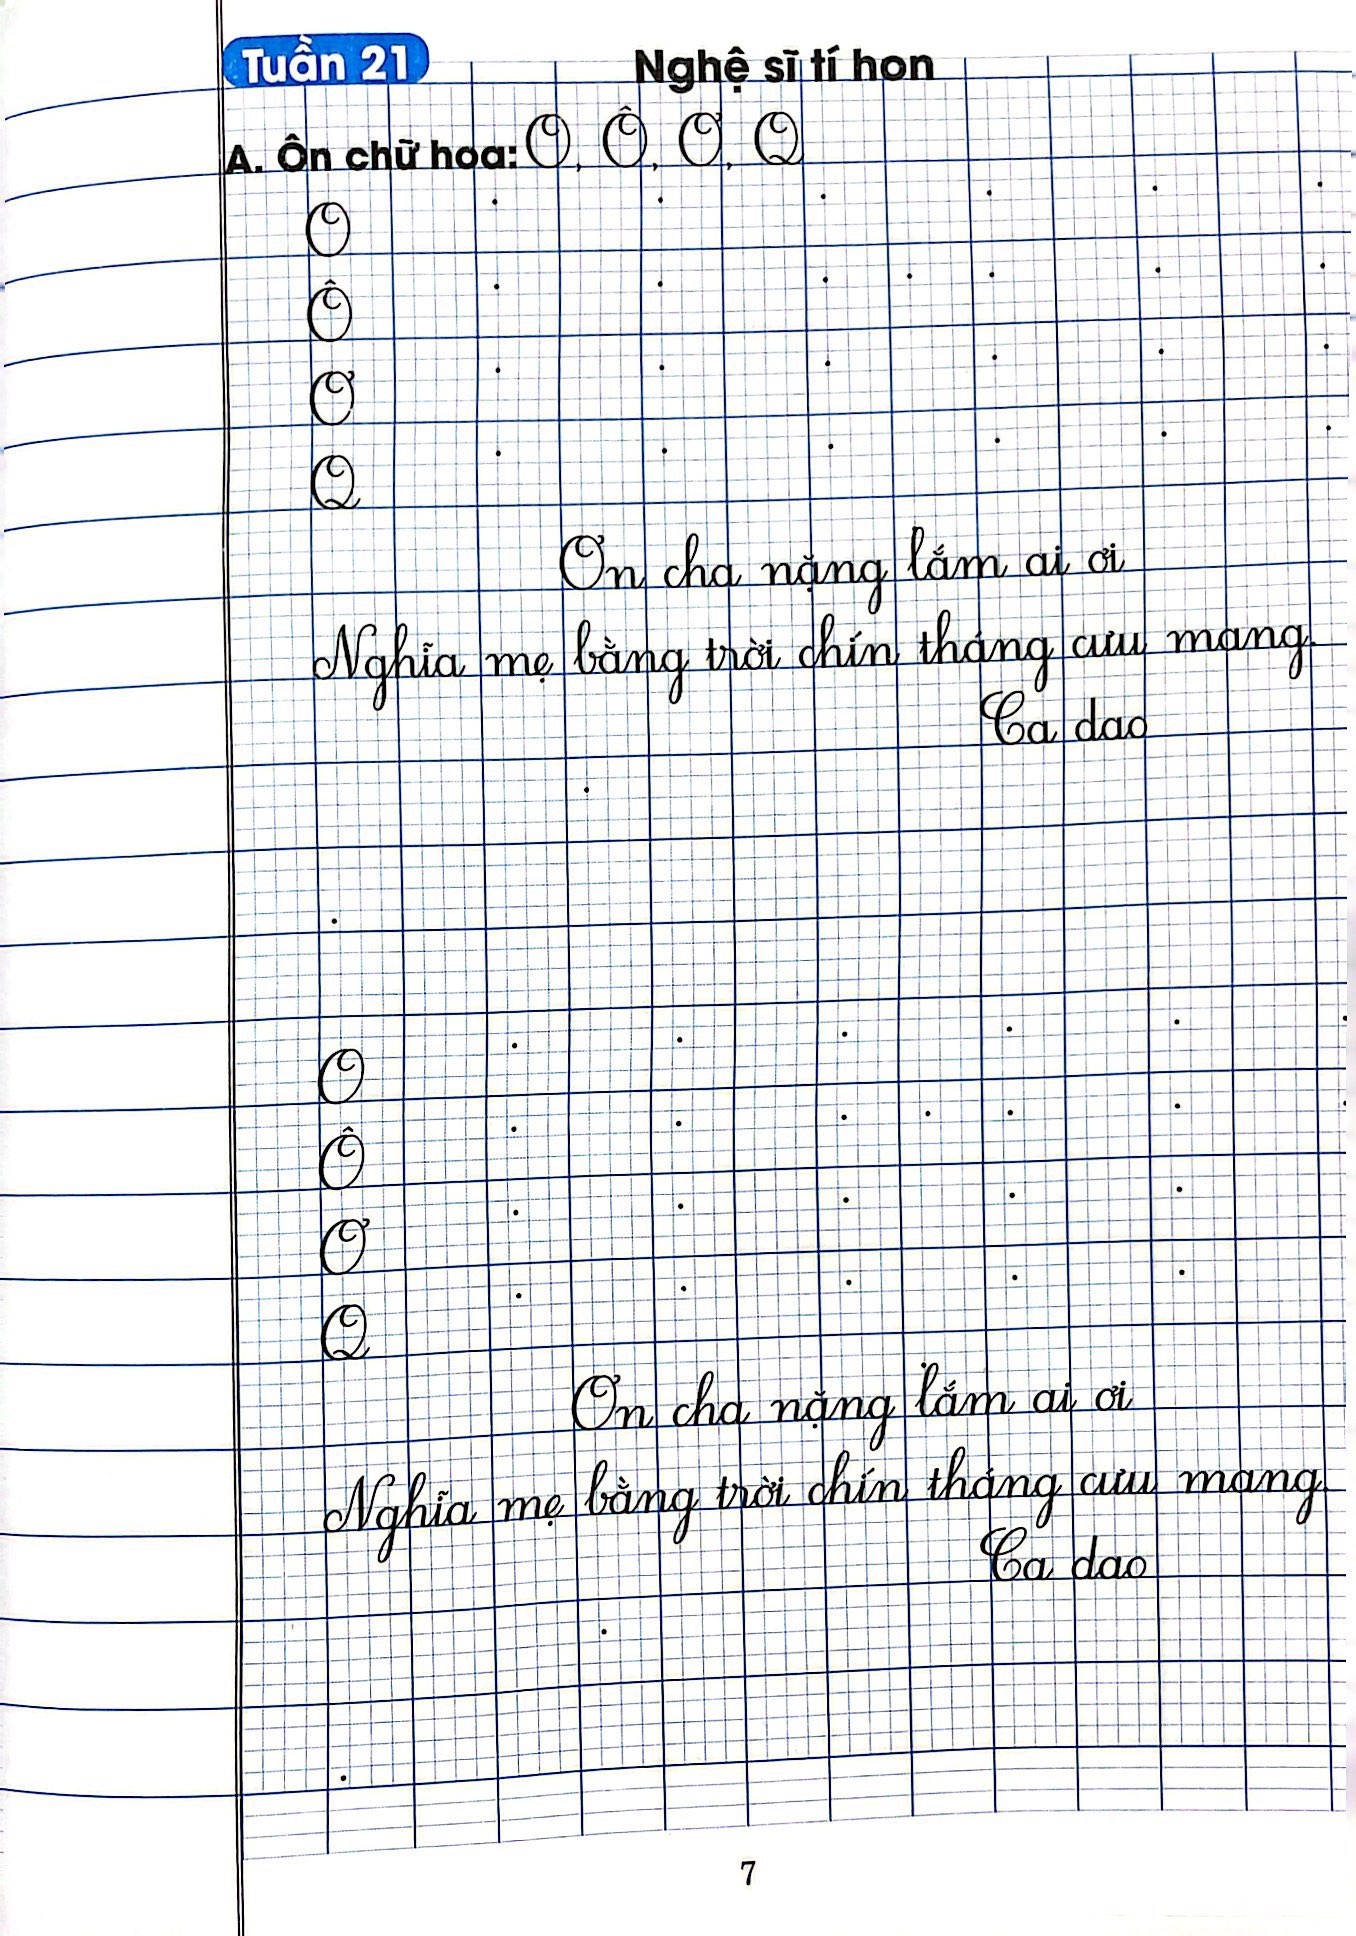 Tuần 21 Nghệ sĩ tí hon
A. Ôn chữ hoa: O, Ô, Ơ, Q
O
Ô
Ơ
Q
Ơn cha nặng lắm ai ơi
Nghĩa mẹ bằng trời chín tháng cưu mang.
Ca dao
O
Ô
Ơ
Q
Ơn cha nặng lắm ai ơi
Nghĩa mẹ bằng trời chín tháng cưu mang.
Ca dao
7